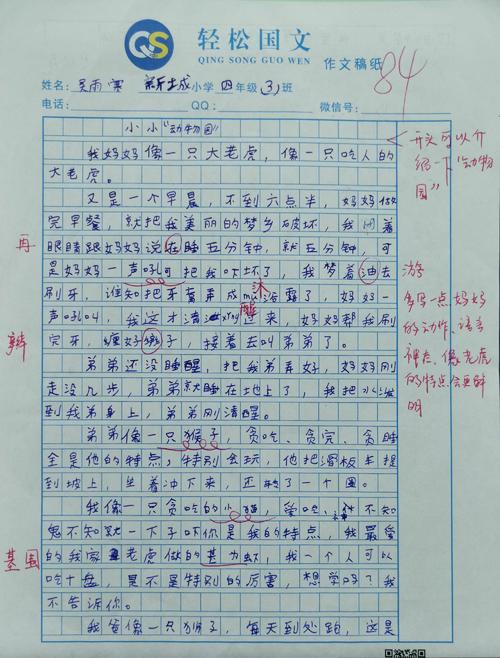 QS
轻松国文
QING SONG GUO WEN
作文稿纸
84
姓名: 吴雨霏 新城小学四年级(3)班
电话: QQ: 微信号:
小小"动物园"
开头可以介绍一下"动物园"
我妈妈像一只大老虎,像一只吃人的
大老虎。
又是一个早晨,不到六点半,妈妈做
完早餐,就把我美丽的梦乡破坏,我闭着
再
眼睛跟妈妈说在睡五分钟,就五分钟,可
是妈妈一声吼可把我吓坏了,我梦着油去
游
刷牙,谁知把牙膏弄成mù浴露了,妈妈一
沐
声吼叫,我这才清xǐng过来,妈妈帮我刷
醒
完牙,缠好缏子,接着去叫弟弟了。
辫
多写一点妈妈的动作、语言
神态,像老虎的特点会更鲜明
弟弟还没睡醒,把我弟弄好,妈妈刚
走没几步,弟弟就睡在地上了,我把水泼
到我弟身上,弟弟刚清醒。
弟弟像一只猴子,贪吃、贪完、贪睡
全是他的特点,特别会玩,他把滑板车提
到坡上,坐着冲下来,还转了一个圈。
我像一只贪吃的小猫,爱吃、神不知
鬼不知就一下子吓你是我的特点,我最爱
的我家老虎做的基为虾,我一个人可以
基围
吃十盘,是不是特别的厉害,想学吗?我
不告诉你。
我爸像一只猴子,每天到处跑,这是